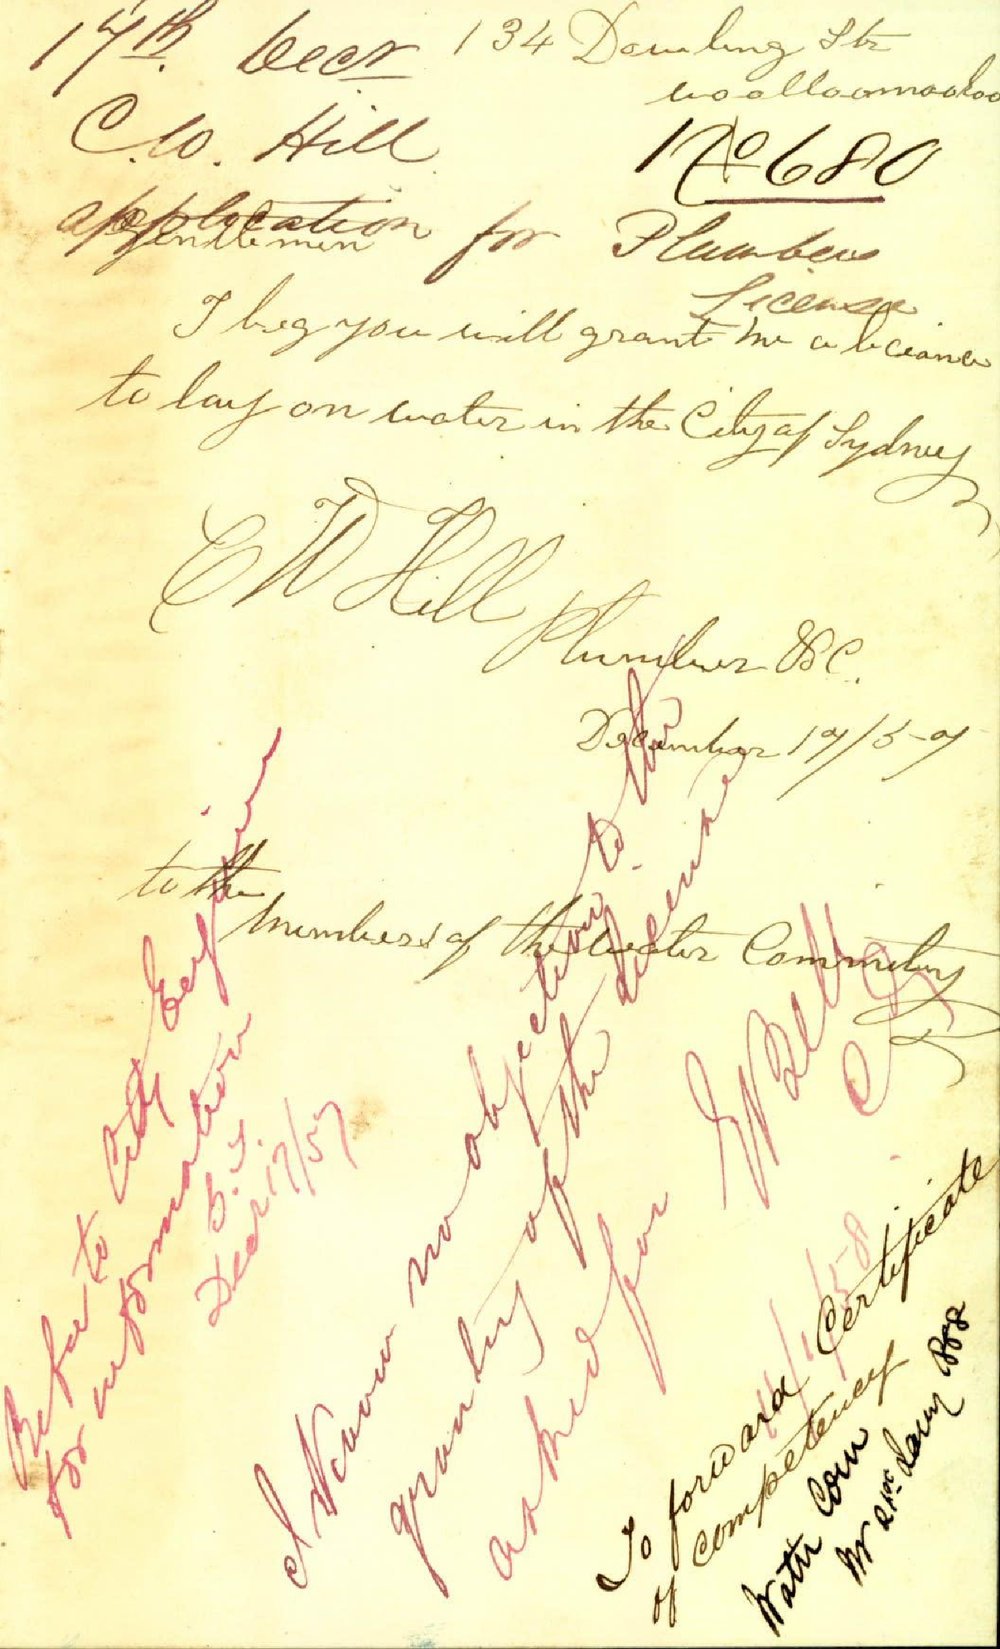 17th. Decr
134 Dowling Str
woolloomooloo
C.W. Hill
No 680
application for Plumbers
License
Gentlemen
I beg you will grant me a liciance
to lay on water in the City of Sydney
C W Hill
Plumber &C.
December 17/57
to the
Members of the Water Committy
Refer to City Engineer
for information
Decr 17/57
I Know no objection to the
granting of the license
asked for
E Bell
C E
11/1/58
To forward Certificate
of competency
Water Com
21st Jany 858